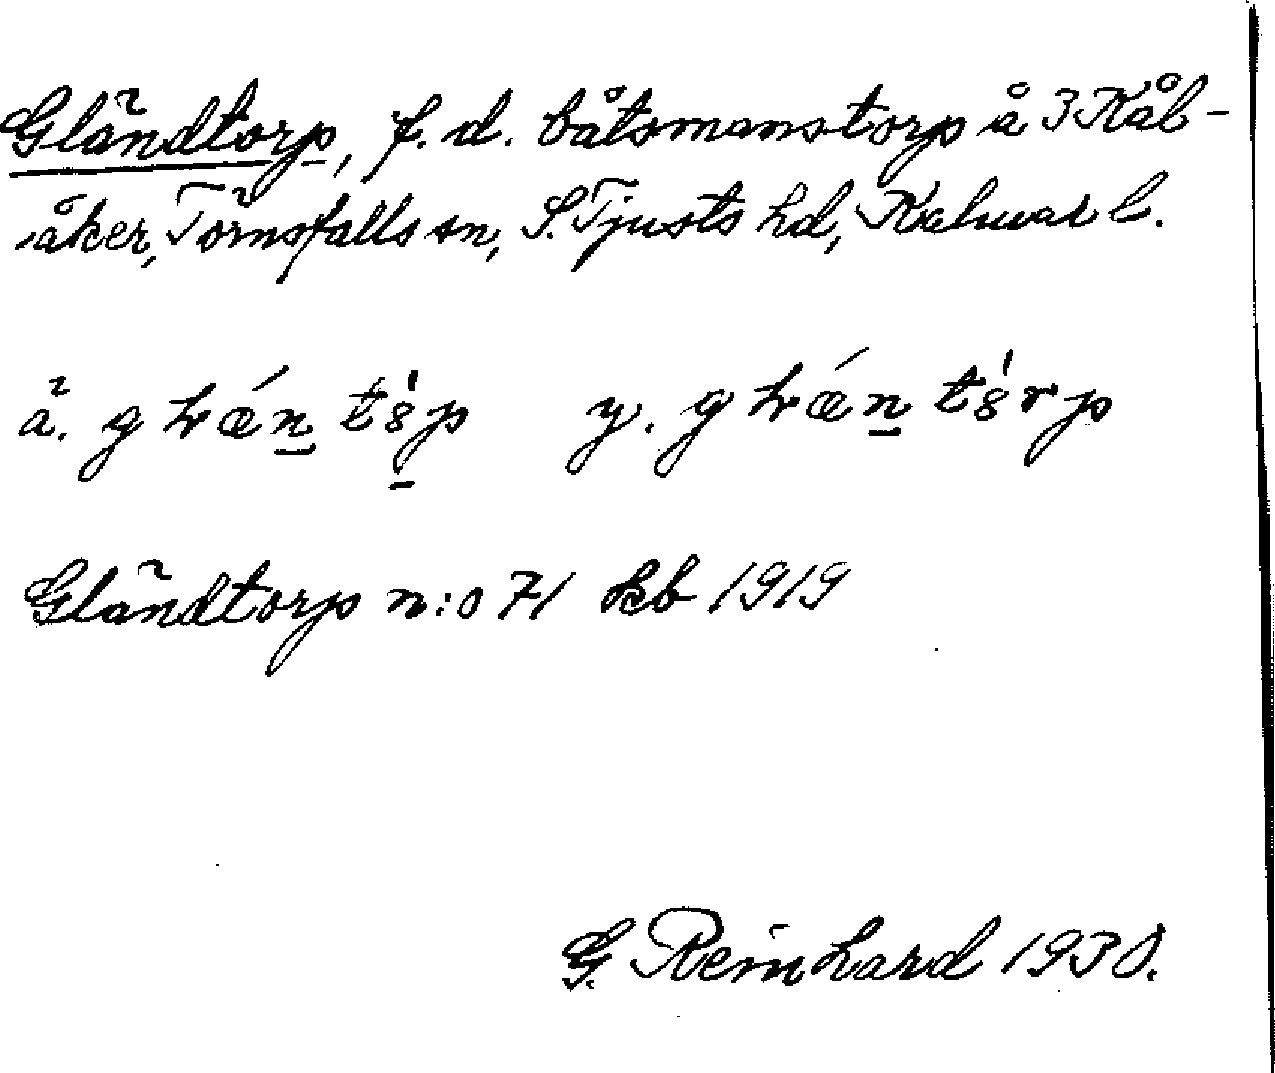 Gländtorp, f. d. båtsmanstorp å 3 Kål-
åker, Törnsfalls sn, S. Tjusts hd, Kalmar l.
ä. y.
Gländtorp n:o 71 kb 1919
G. Reinhard 1930.